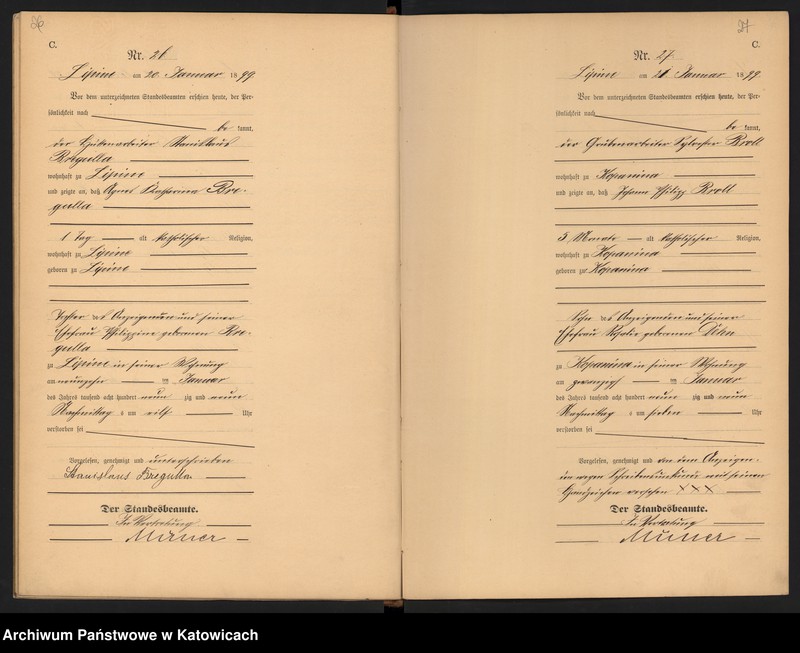 26
C.
Nr. 26
Lipine am 20 Januar 1899
Vor dem unterzeichneten Standesbeamten erschien heute, der Per-
sönlichkeit nach
be kannt,
der Hüttenarbeiter Stanislaus
Bregulla
wohnhaft zu Lipine
und zeigte an, daß Agnes Bre-
gulla
1 Tag alt katholischer Religion,
wohnhaft zu Lipine
geboren zu Lipine
Tochter des Anzeigenden und seiner
Ehefrau Philippine geborenen Bre-
gulla
zu Lipine in seiner Wohnung
am neunzehn ten Januar
des Jahres tausend acht hundert neun zig und neun
Nachmittag s um elf Uhr
verstorben sei
Vorgelesen, genehmigt und unterschrieben
Stanislaus Bregulla
Der Standesbeamte.
In Vertretung
27
C.
Nr. 27
Lipine am 21 Januar 1899
Vor dem unterzeichneten Standesbeamten erschien heute, der Per-
sönlichkeit nach
be kannt,
der Grubenarbeiter Sylvester Kroll
wohnhaft zu Kopanina
und zeigte an, daß Johann Philipp Kroll
3 Monate alt katholischer Religion,
wohnhaft zu Kopanina
geboren zu Kopanina
Sohn des Anzeigenden und seiner
Ehefrau Rosalie geborenen
zu Kopanina in seiner Wohnung
am zwanzigs ten Januar
des Jahres tausend acht hundert neun zig und neun
Nachmittag s um sieben Uhr
verstorben sei
Vorgelesen, genehmigt und von dem Anzeigen-
den wegen Schreibensunkunde mit seinem
Handzeichen versehen XXX
Der Standesbeamte.
In Vertretung
Archiwum Państwowe w Katowicach